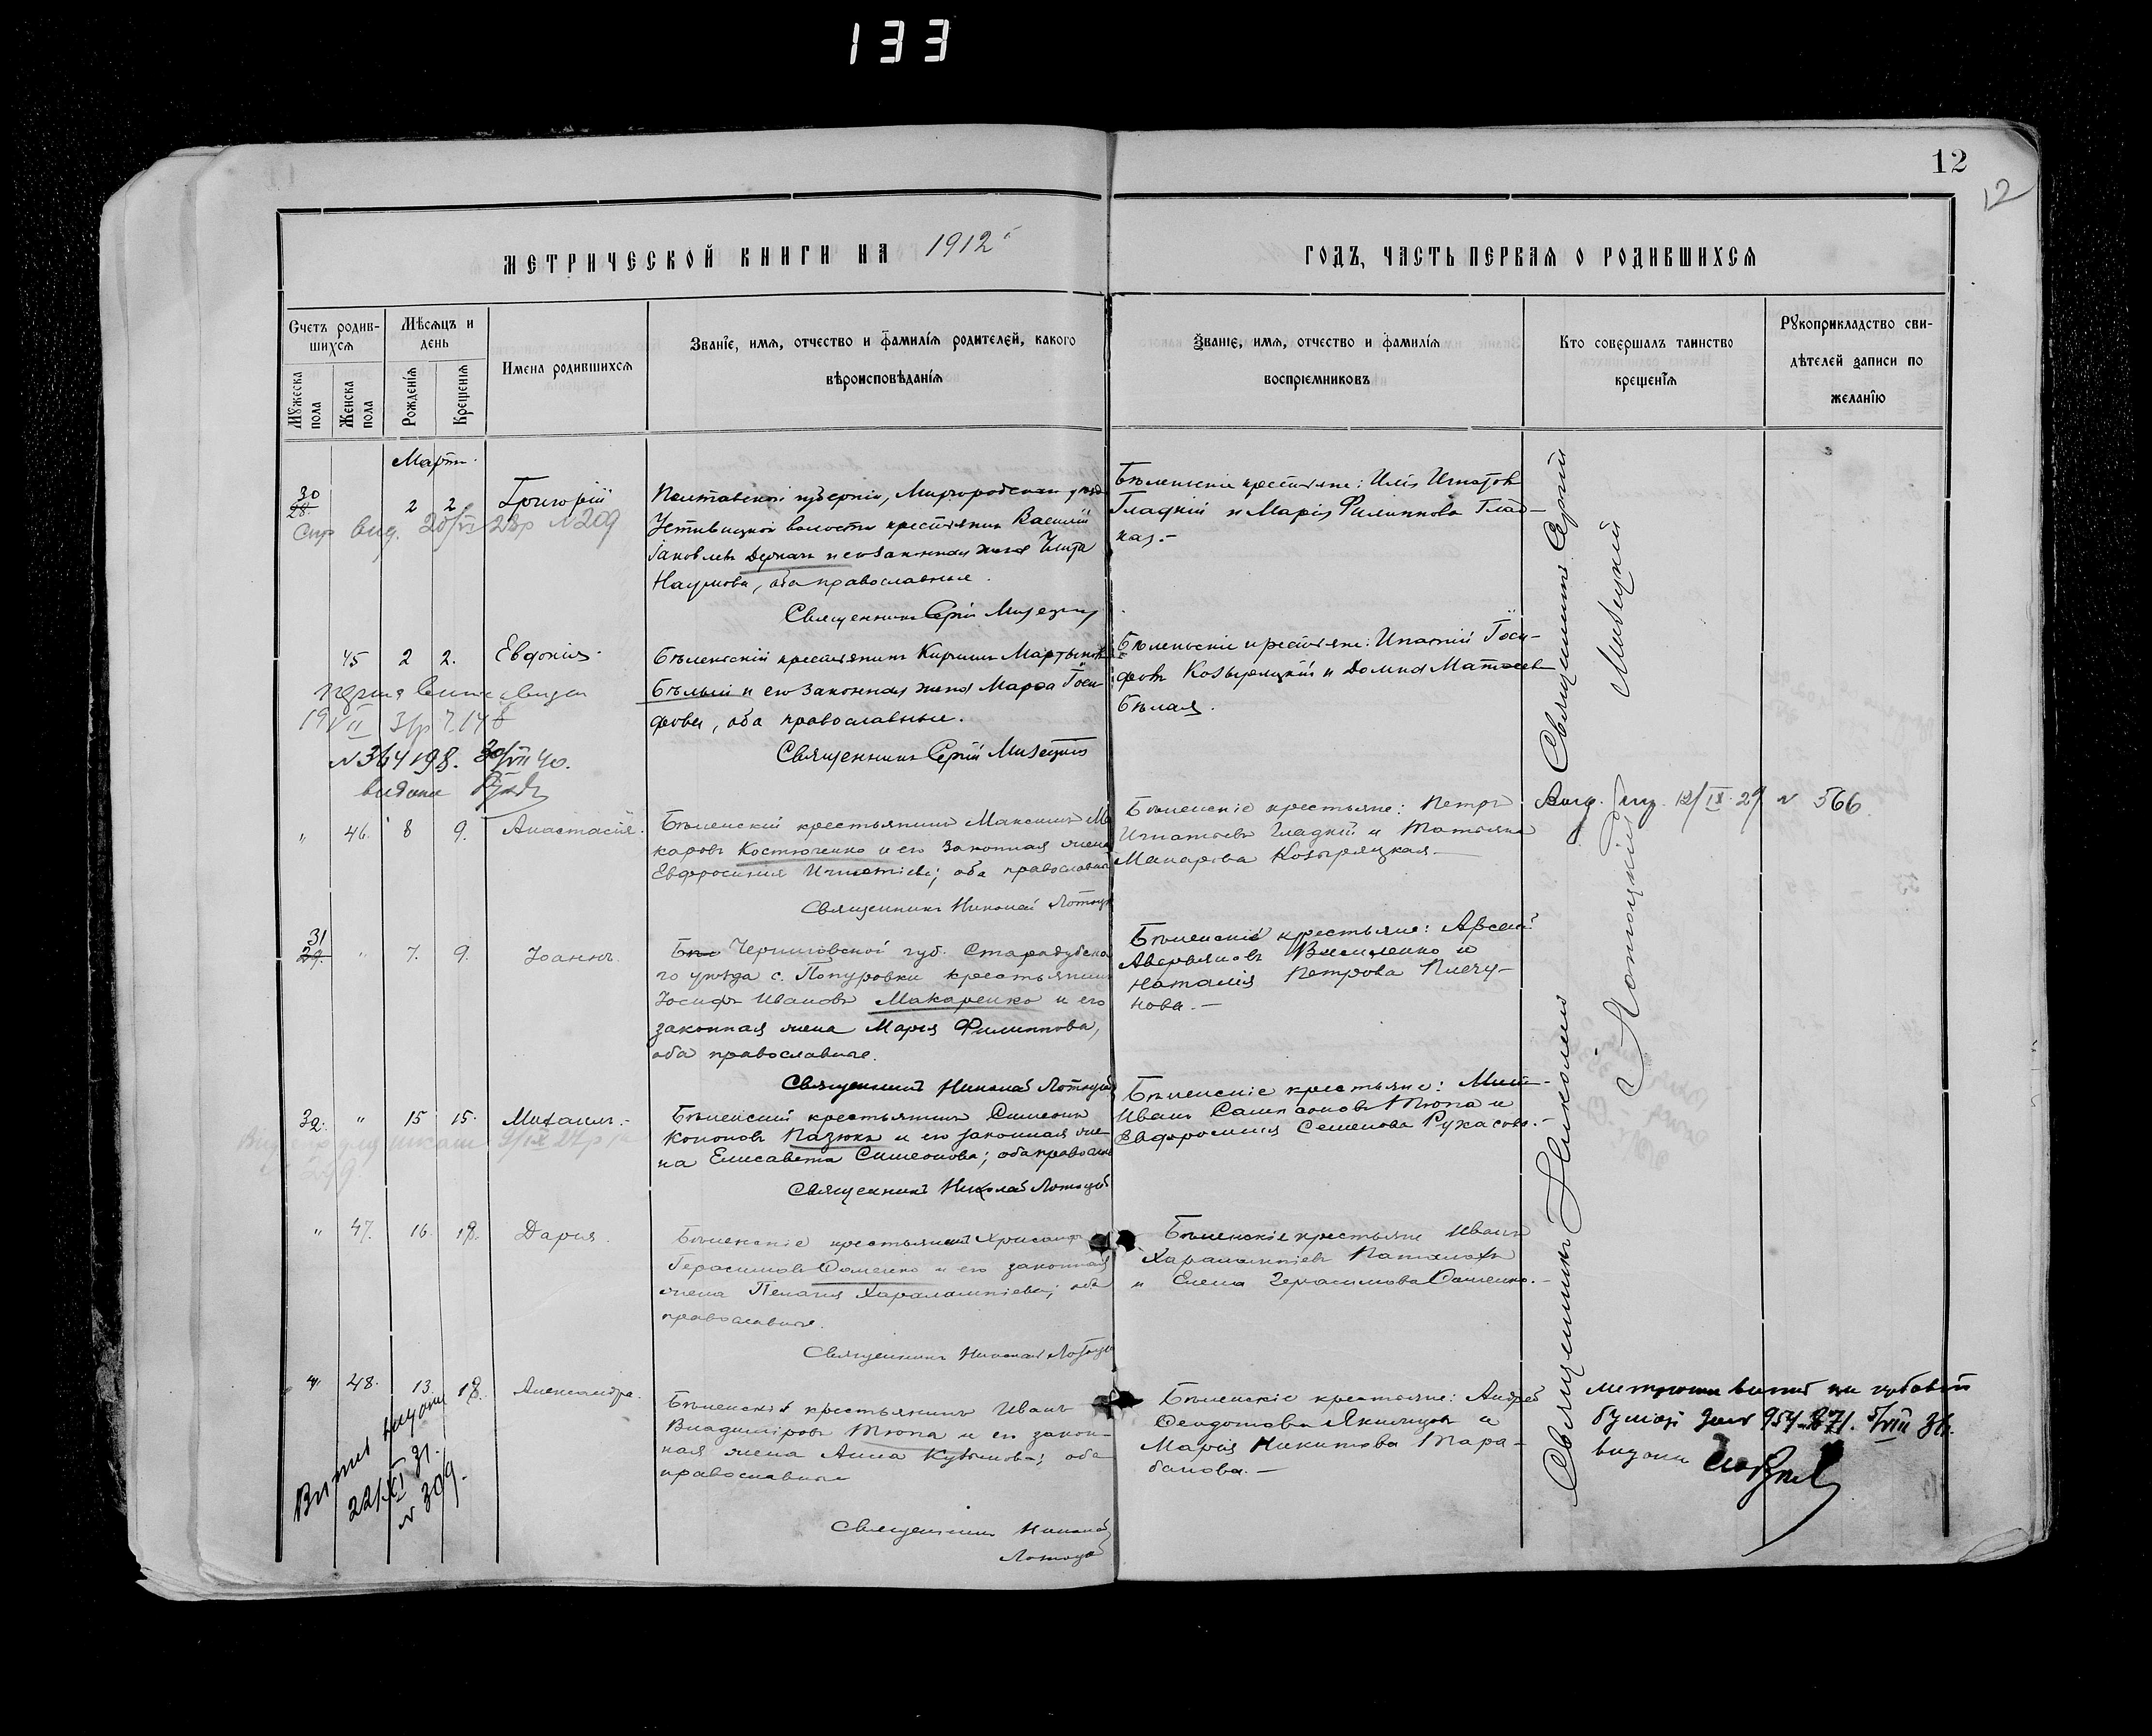 133
12
12
МЕТРИЧЕСКОЙ КНИГИ НА 1912
ГОДЪ, ЧАСТЬ ПЕРВАЯ О РОДИВШИХСЯ
Счетъ родив-
шихся
Мужеска пола
Женска пола
Мѣсяцъ и
день
Рожденія
Крещенія
Имена родившихся
Званіе, имя, отчество и фамилія родителей, какого
вѣроисповѣданія
Званіе, имя, отчество и фамилія
воспріемниковъ
Кто совершалъ таинство
крещенія
Рукоприкладство сви-
дѣтелей записи по
желанію
Мартъ.
30
28. 2 2. Григорій
Полтавской губерніи, Миргородскаго уѣзда
Устивицкой волости крестьянинъ Василій
Іаковлевъ Деркачъ и его законная жена
Наумова, оба православные.
Священникъ Сергій Мизецкій
Бѣленьскіе крестьяне: Илія Игнатовъ
Гладкій и Марія Филиппова Глад-
кая.-
№ 209
45 2 2. Евдокія.
Бѣленьскій крестьянинъ Кириллъ Мартыновъ
Бѣлый и его законная жена Марѳа Іоси-
фова, оба православные.
Священникъ Сергій Мизецкій
Бѣленьскіе крестьяне: Ипатій Іоси-
фовъ Козыряцкій и Домна Матѳеева
Бѣлая.
№ 364198. 30/VII 40.
видана
" 46. 8 9. Анастасія.
Бѣленскій крестьянинъ Максимъ Ма
каровъ Костюченко и его законная жена
Евфросинія Игнатіева; оба православные
Священникъ Николай Лотоцкій
Бѣленскіе крестьяне: Петръ
Игнатьевъ Гладкій и Татьяна
Макарова Козыряцкая.-
12/IX 27 № 566
31
29. " 7. 9. Іоаннъ.
Черниговской губ. Стародубска
го уѣзда с. Попуровки крестьянинъ
Іосифъ Ивановъ Макаренко и его
законная жена Марія Филиппова,
оба православные.
Священникъ Николай Лотоцкій
Бѣленскіе крестьяне: Арсеній
Аверьяновъ Василенко и
Наталія Петрова Плечу-
нова.-
32. " 15 15. Михаилъ.-
Бѣленскій крестьянинъ Симеонъ
Кононовъ Пазюкъ и его законная же-
на Елисавета Симеонова; оба православ
Священникъ Николай Лотоцкій
Бѣленскіе крестьяне:
Иванъ Сампсоновъ Тюпа и
Евфросинія Семенова
" 47. 16. 18. Дарія.
Бѣленскіе крестьянинъ Хрисанфъ
Герасимовъ Сошенко и его законная
жена Пелагія Харалампіева; оба
православные.
Священникъ Николай Лотоцкій
Бѣленскіе крестьяне Иванъ
Харалампіевъ
и Елена Герасимова Сошенко.-
" 48. 13. 18. Александра.
Бѣленскій крестьянинъ Иванъ
Владиміровъ Тюпа и его закон-
ная жена Анна Кузьмова; оба
православные
Священникъ Николай
Лотоцкій
Бѣленскіе крестьяне: Андрей
Ѳеодотовъ Якимцовъ и
Марія Никитова Тара-
банова.-
Витяг видано
22/XI 31.
№ 309.
Священникъ Сергій
Мизецкій
Священникъ Николай
Лотоцкій
954-871. 5/VIII 36.
видани